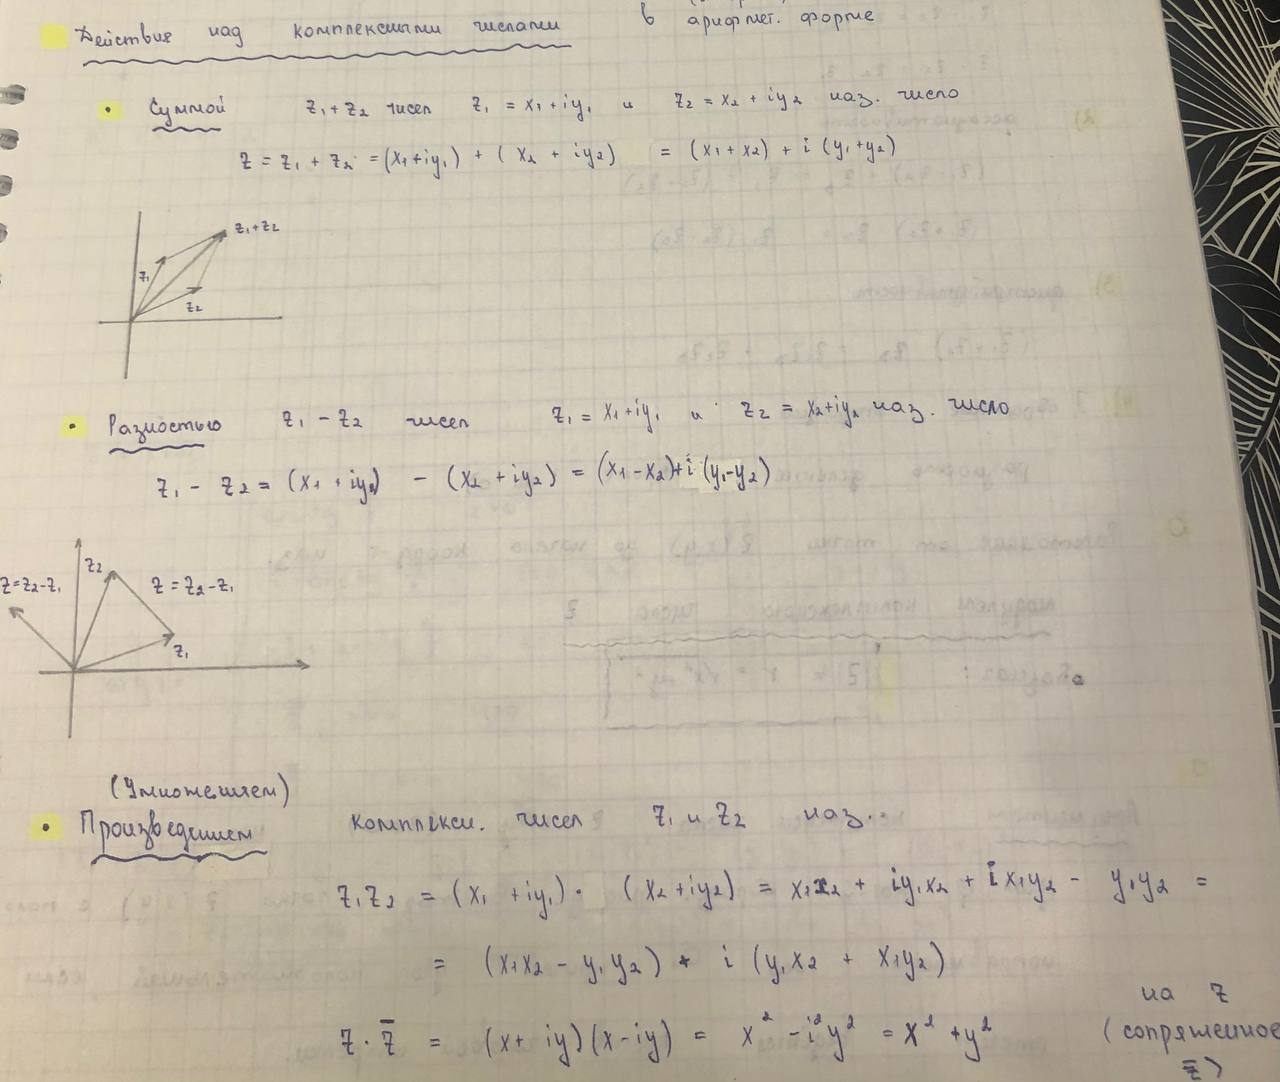 Действия над комплексными числами в арифмет. форме
• Суммой z₁ + z₂ чисел z₁ = x₁ + iy₁ и z₂ = x₂ + iy₂ наз. число
z = z₁ + z₂ = (x₁ + iy₁) + (x₂ + iy₂) = (x₁ + x₂) + i (y₁ + y₂)
z₁ + z₂
z₁
z₂
• Разностью z₁ − z₂ чисел z₁ = x₁ + iy₁ и z₂ = x₂ + iy₂ наз. число
z₁ − z₂ = (x₁ + iy₁) − (x₂ + iy₂) = (x₁ − x₂) + i (y₁ − y₂)
z₂
z = z₂ − z₁ z = z₂ − z₁
z₁
(Умножением)
• Произведением комплексн. чисел z₁ и z₂ наз...
z₁z₂ = (x₁ + iy₁) · (x₂ + iy₂) = x₁x₂ + iy₁x₂ + ix₁y₂ − y₁y₂ =
= (x₁x₂ − y₁y₂) + i (y₁x₂ + x₁y₂)
на z
z · z̄ = (x + iy)(x − iy) = x² − i²y² = x² + y² (сопряженное
z̄)